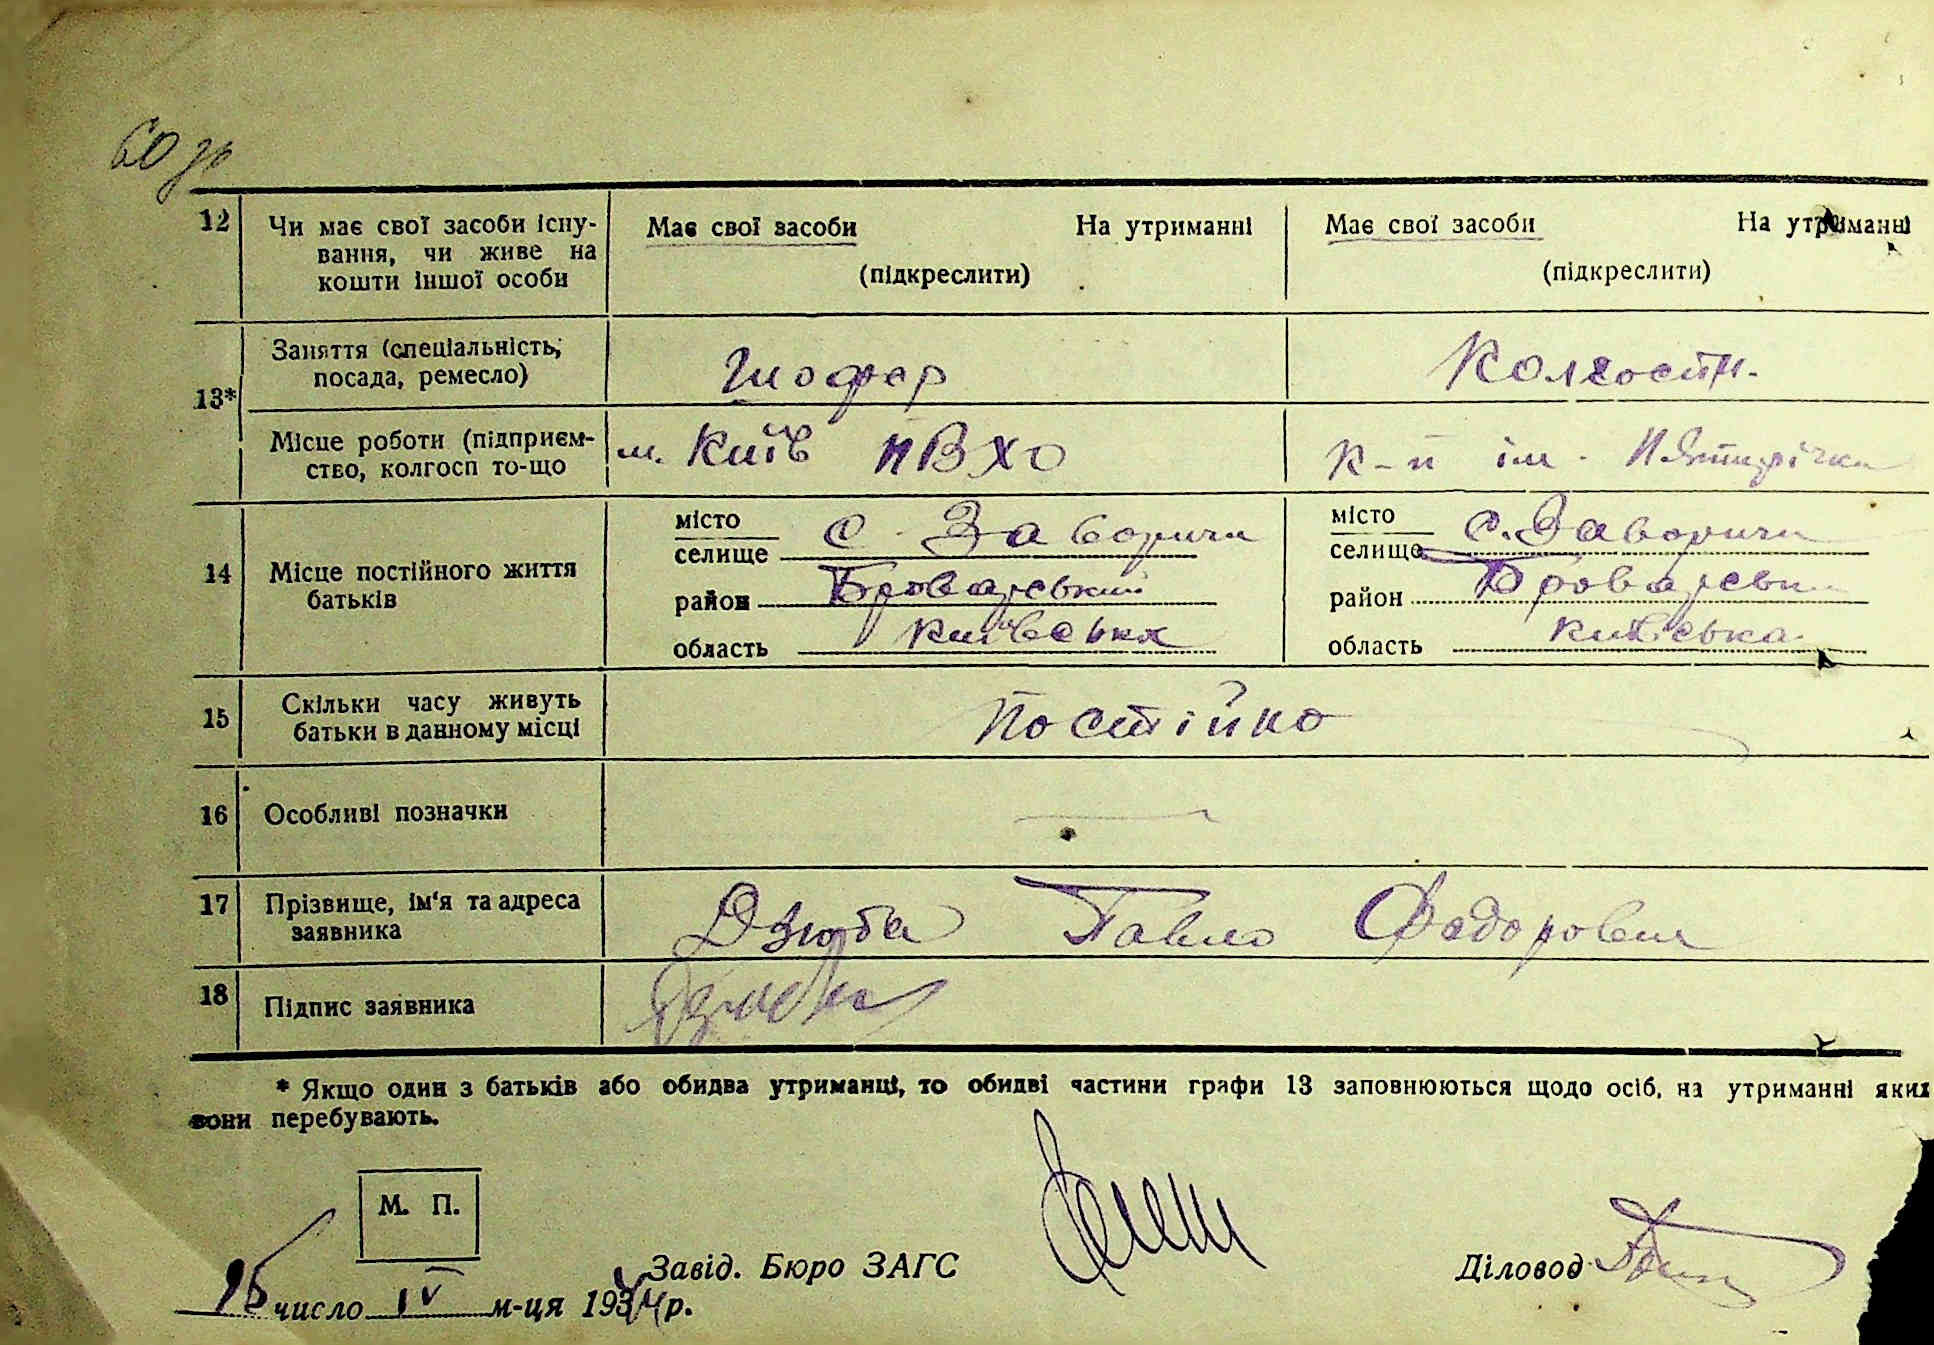 60 зв
12 Чи має свої засоби існу- Має свої засоби На утриманні Має свої засоби На утриманні
вання, чи живе на
кошти іншої особи (підкреслити) (підкреслити)
13* Заняття (спеціальність, Шофер Колгоспн.
посада, ремесло)
Місце роботи (підприєм- м. Київ ПВХО к-п ім. П'ятирічки
ство, колгосп то-що
14 Місце постійного життя
батьків
місто
селище с. Заворичи
район Броварський
область Київська
місто
селище с. Заворичи
район Броварськ
область Київська
15 Скільки часу живуть
батьки в данному місці Постійно
16 Особливі позначки —
17 Прізвище, ім'я та адреса Дзюба Павло Федорович
заявника
18 Підпис заявника Дзюба
* Якщо один з батьків або обидва утриманці, то обидві частини графи 13 заповнюються щодо осіб, на утриманні яких
вони перебувають.
М. П.
Завід. Бюро ЗАГС Діловод
число IV м-ця 193 р.